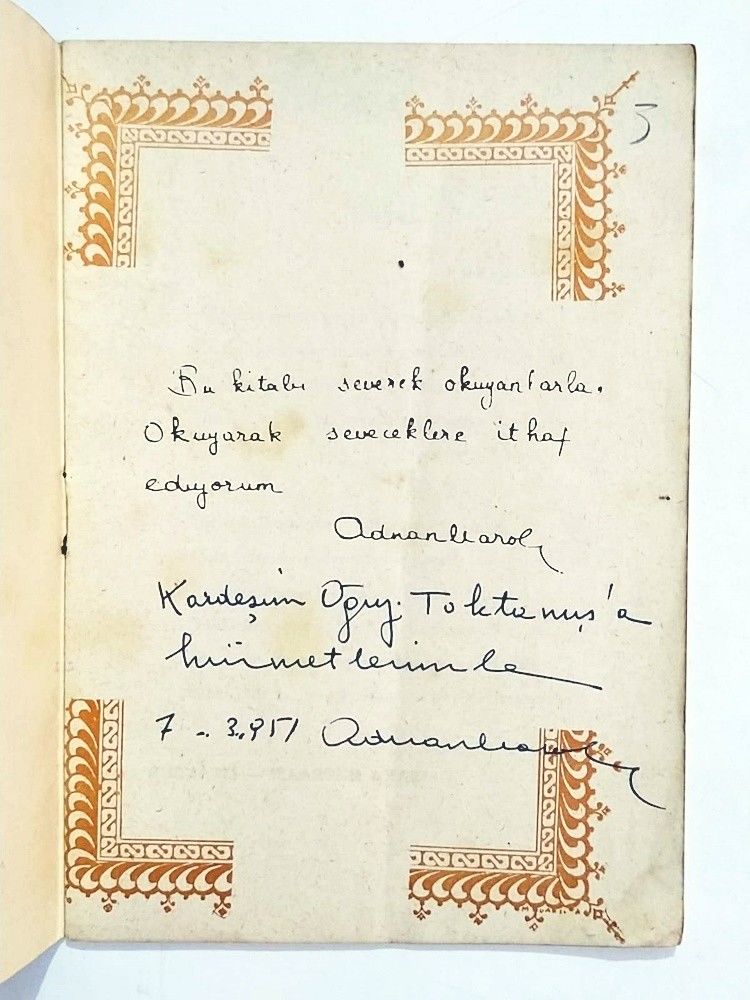 3
Bu kitabı severek okuyanlarla.
Okuyarak seveceklere ithaf
ediyorum
Adnan Varol
Kardeşim Oğuz Toktamış'a
hürmetlerimle
7 - 3.951 Adnan Varol